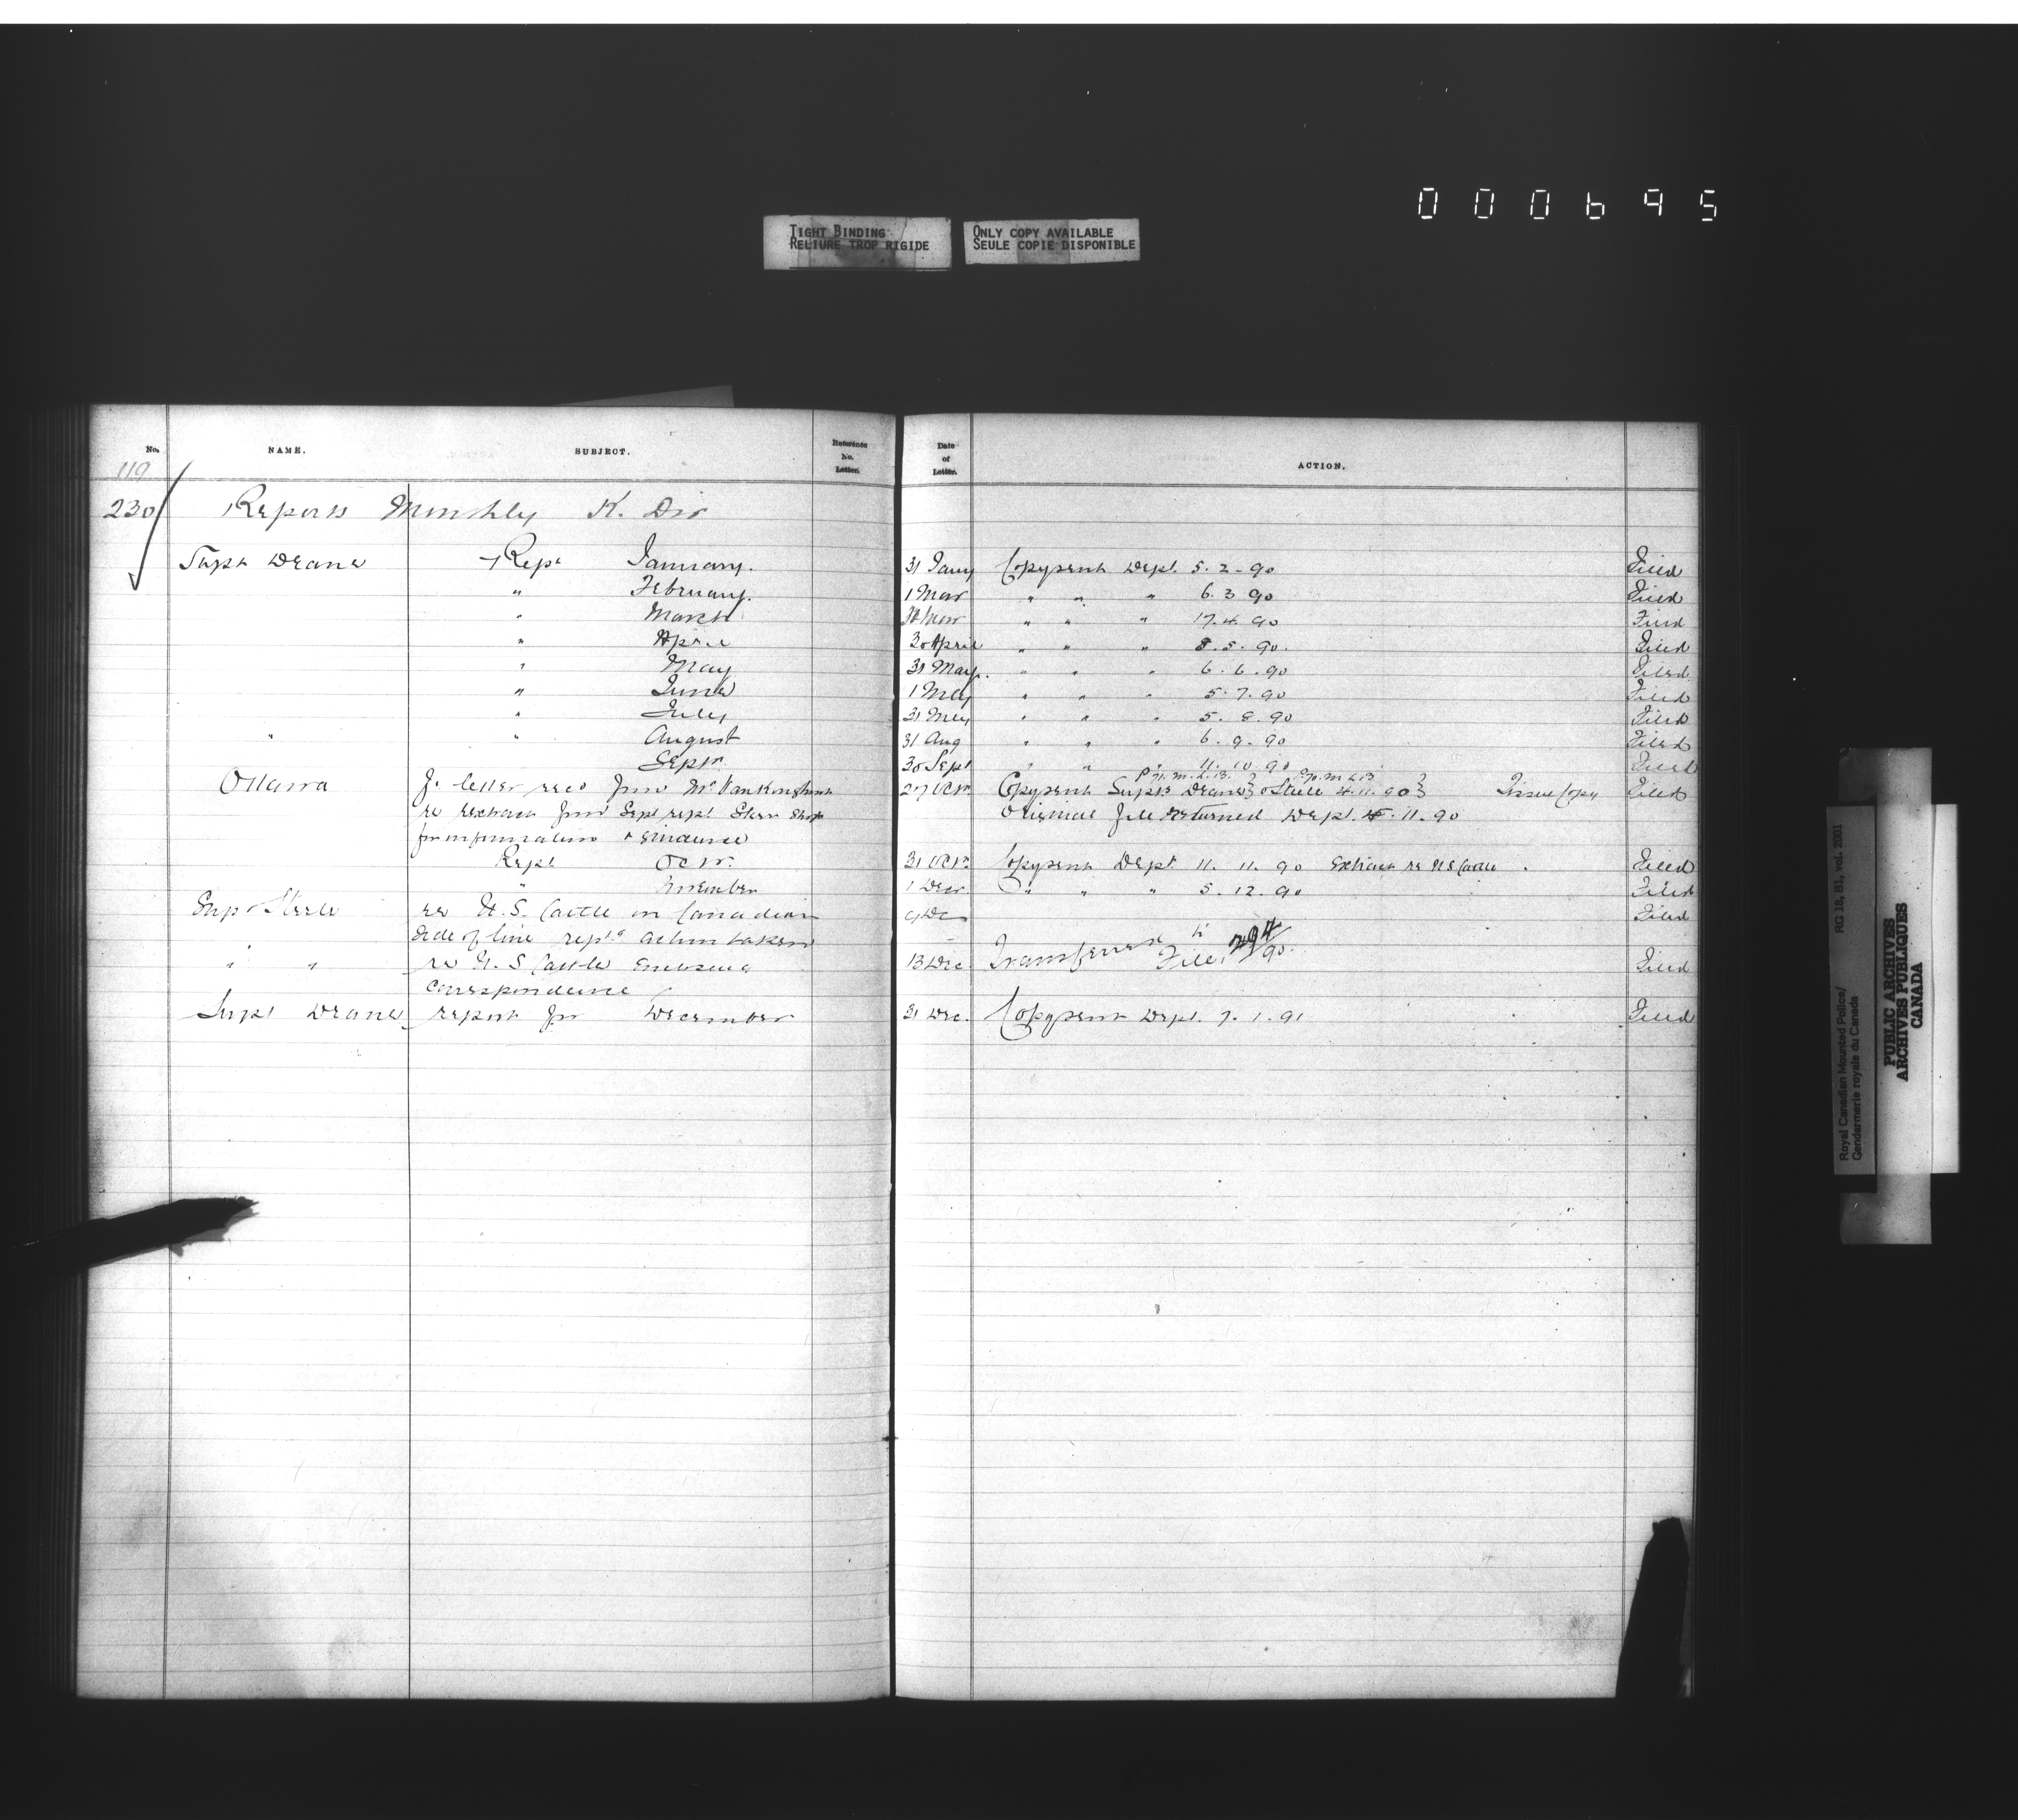 000695
TIGHT BINDING
RELIURE TROP RIGIDE
ONLY COPY AVAILABLE
SEULE COPIE DISPONIBLE
No. NAME. SUBJECT. Reference No. Letter. Date of Letter. ACTION.
119
230 Reports Monthly K. Div
Supt Deane Rept January. 31 Jany Copy sent Dept. 5. 2. 90 Filed
" February. 1 Mar " " " 6. 3 90 Filed
" March " " " 17. 4. 90 Filed
" April 30 April " " " 8. 5. 90. Filed
" May 31 May. " " " 6. 6. 90 Filed
" June " " " 5. 7. 90 Filed
" July " " " 5. 8. 90 Filed
" " August 31 Aug " " " 6. 9. 90 Filed
Septr. 30 Sept " " " 11. 10. 90 Filed
Ottawa letter recd from Mr. Vankoughnet 27 Octr. Copy sent Supts Deane & Steele 4. 11. 90 Tissue Copy Filed
re extract from Sept rept Original file returned Dept. 11. 90
for information
Rept Octr. 31 Octr. Copy sent Dept 11. 11. 90 Extract re U S Cattle Filed
" November 1 Decr. " " " 5. 12. 90 Filed
Supt Steele re U. S. Cattle on Canadian 9 Dec Filed
side of line action taken
" " re U. S Cattle 13 Dec. Transferred to File 294/90. Filed
correspondence
Supt Deane report for December 31 Dec. Copy sent Dept. 7. 1. 91 Filed
Royal Canadian Mounted Police/ RG 18, B1, vol. 2001
Gendarmerie royale du Canada
PUBLIC ARCHIVES
ARCHIVES PUBLIQUES
CANADA